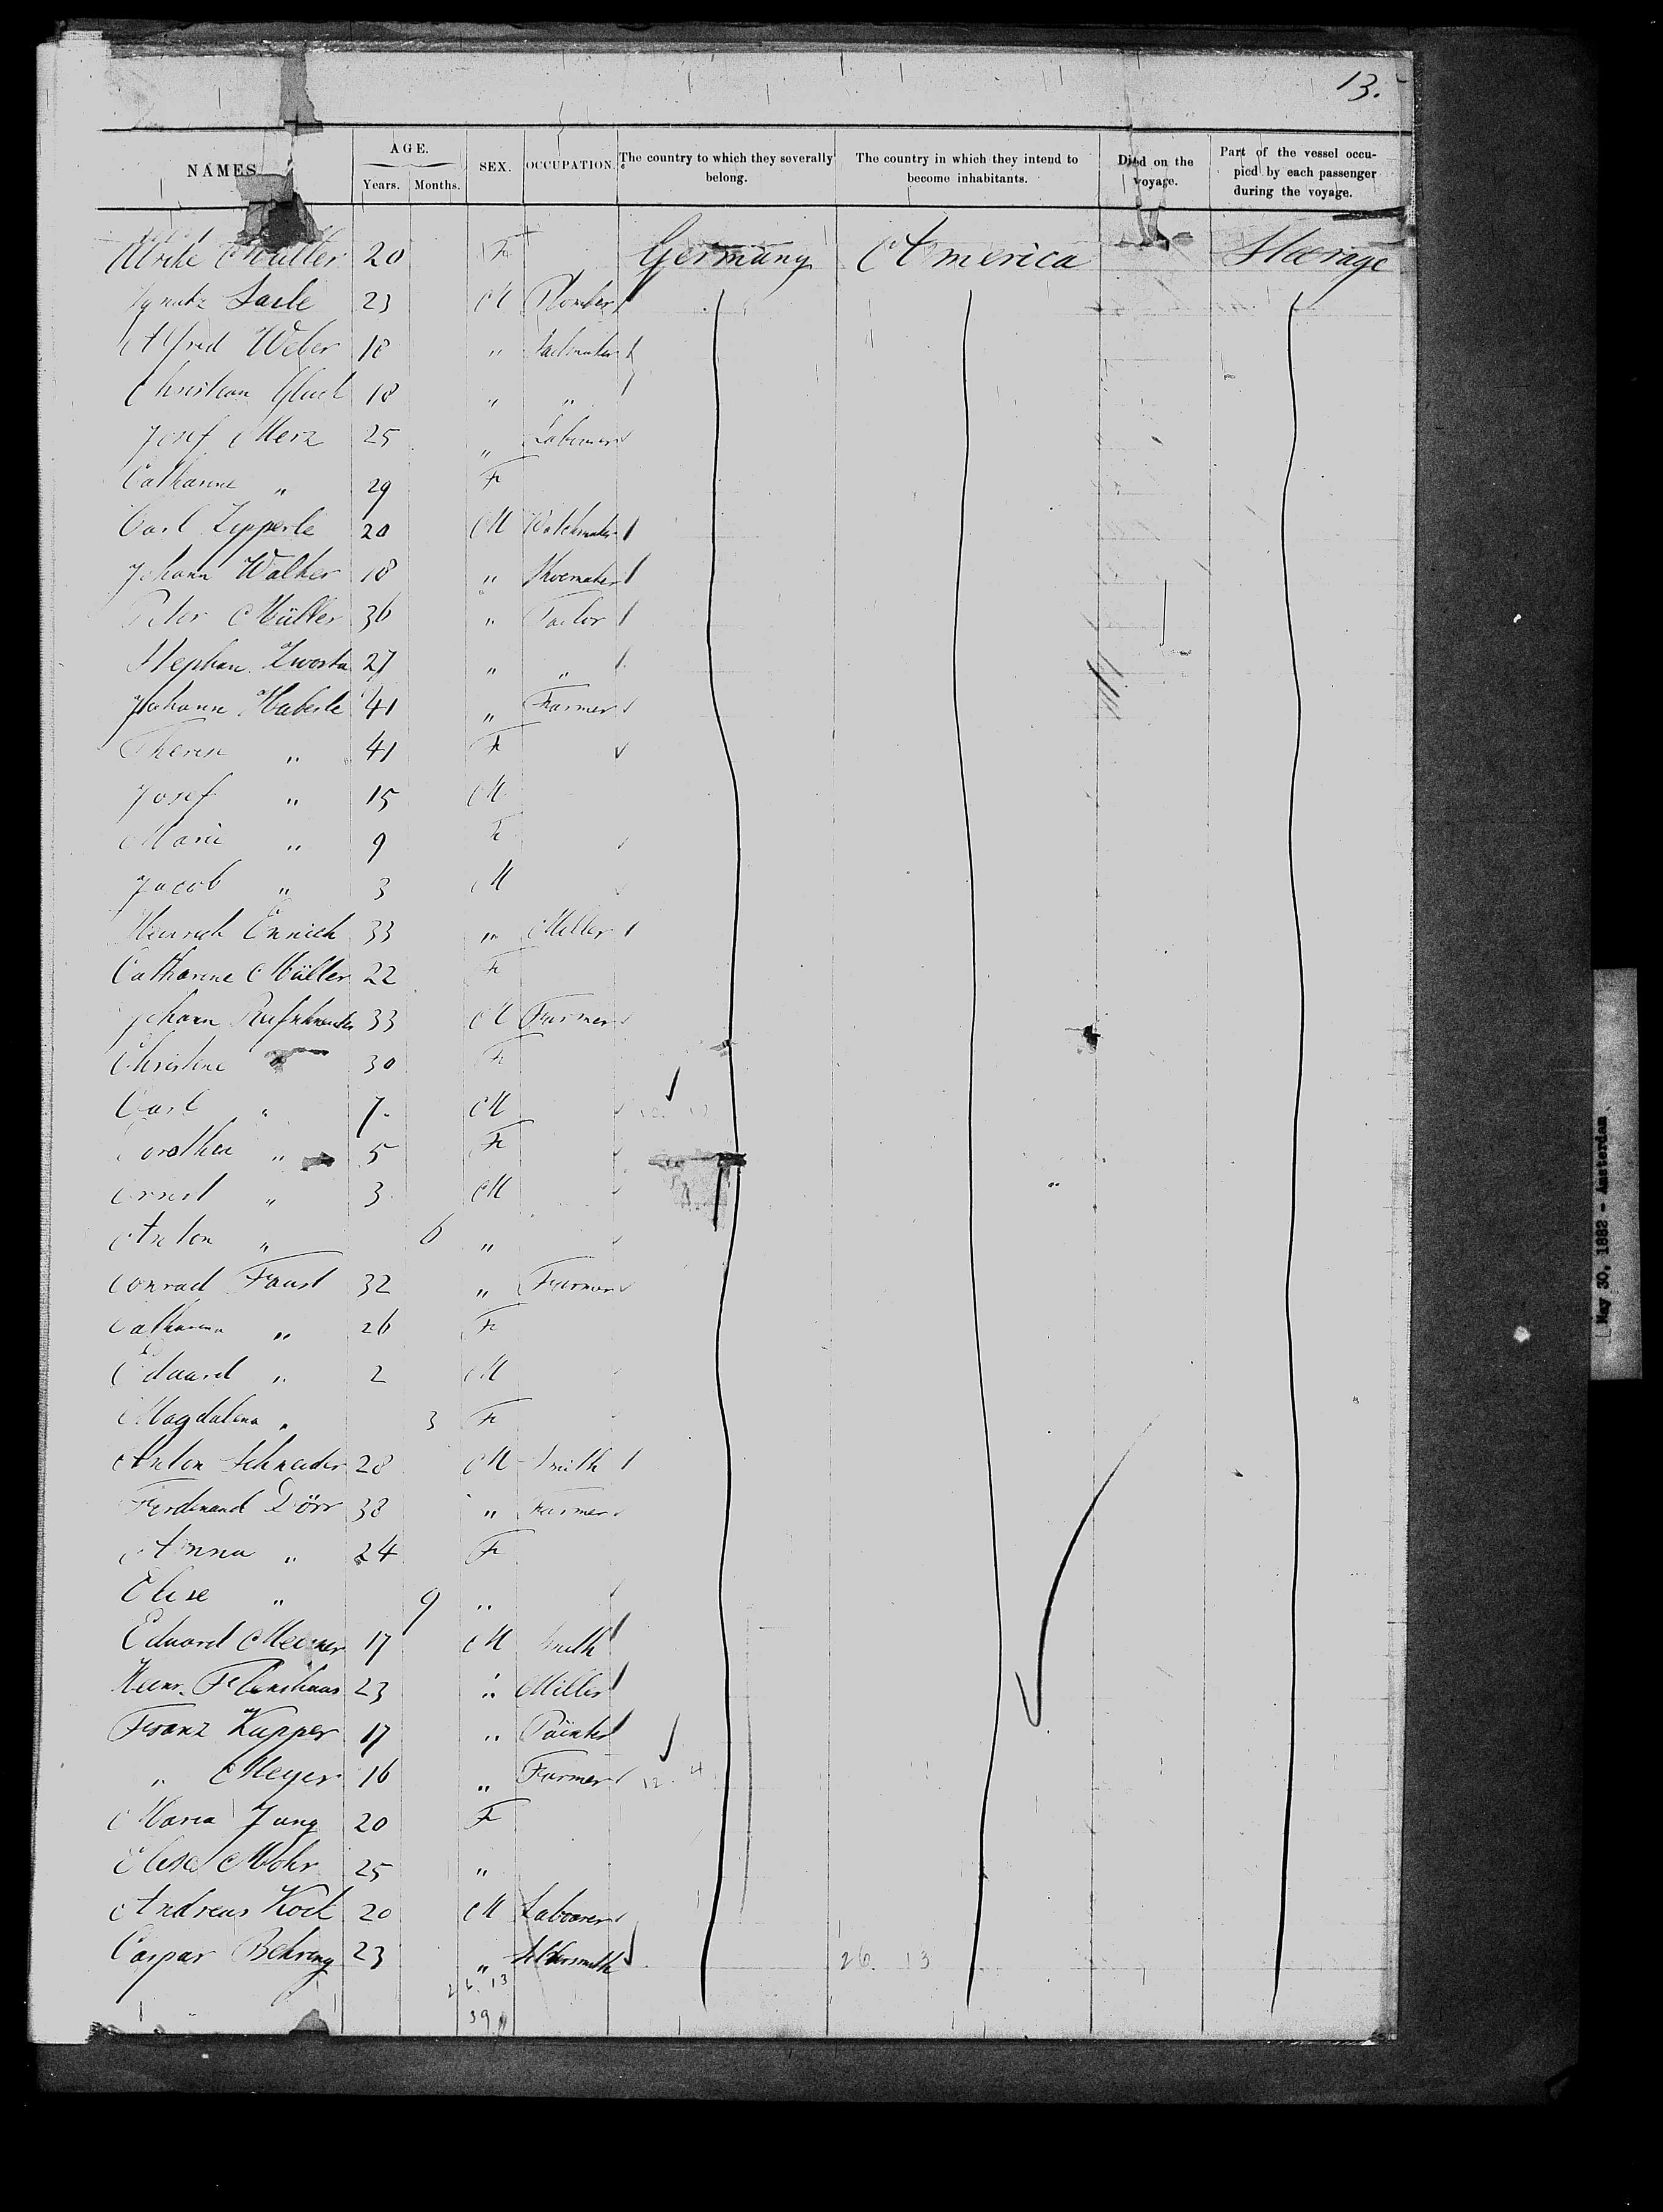 13.
NAMES AGE. Years. Months. SEX. OCCUPATION. The country to which they severally belong. The country in which they intend to become inhabitants. Died on the voyage. Part of the vessel occupied by each passenger during the voyage.
Ulrike Müller 20 F Germany America Steerage
Ignatz 23 M Plomber
Alfred Weber 18 "
Christian Gluck 18 " "
Josef Merz 25 " Labourer
Catharine " 29 F
Carl Zipperle 20 M Watchmaker
Johann Walker 18 " Shoemaker
Peter Müller 36 " Tailor
Stephan 27 " "
Johann Haberle 41 " Farmer
Therese " 41 F
Josef " 15 M
Marie " 9 F
Jacob " 3 M
Heinrich Ennich 33 " Miller
Catharine Müller 22 F
Johann 33 M Farmer
Christine " 30 F
Carl " 7 M
Dorothea " 5 F
Ernst " 3 M
Anton " 6 "
Conrad Faust 32 " Farmer
Catharina " 26 F
Eduard " 2 M
Magdalena " 3 F
Anton Schneider 28 M Smith
Ferdinand Dörr 38 " Farmer
Anna " 24 F
Elise " 9 "
Eduard 17 M Smith
Heinr. 23 " Miller
Franz Kupper 17 " Painter
" Meyer 16 " Farmer 12. 4
Maria Jung 20 F
Elise Mohr 25 "
Andreas Kock 20 M Labourer
Caspar Behring 23 " 26. 13
26. 13
39
May 30, 1882 - Amsterdam